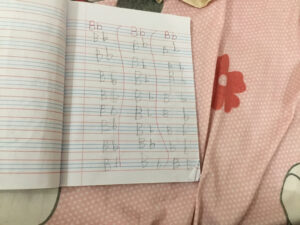 Bb Bb Bb
Bb Bb Bb
Bb Bb Bb
Bb Bb Bb
Bb Bb Bb
Bb Bb Bb
Bb Bb Bb
Bb Bb Bb
Bb Bb Bb
Bb Bb Bb